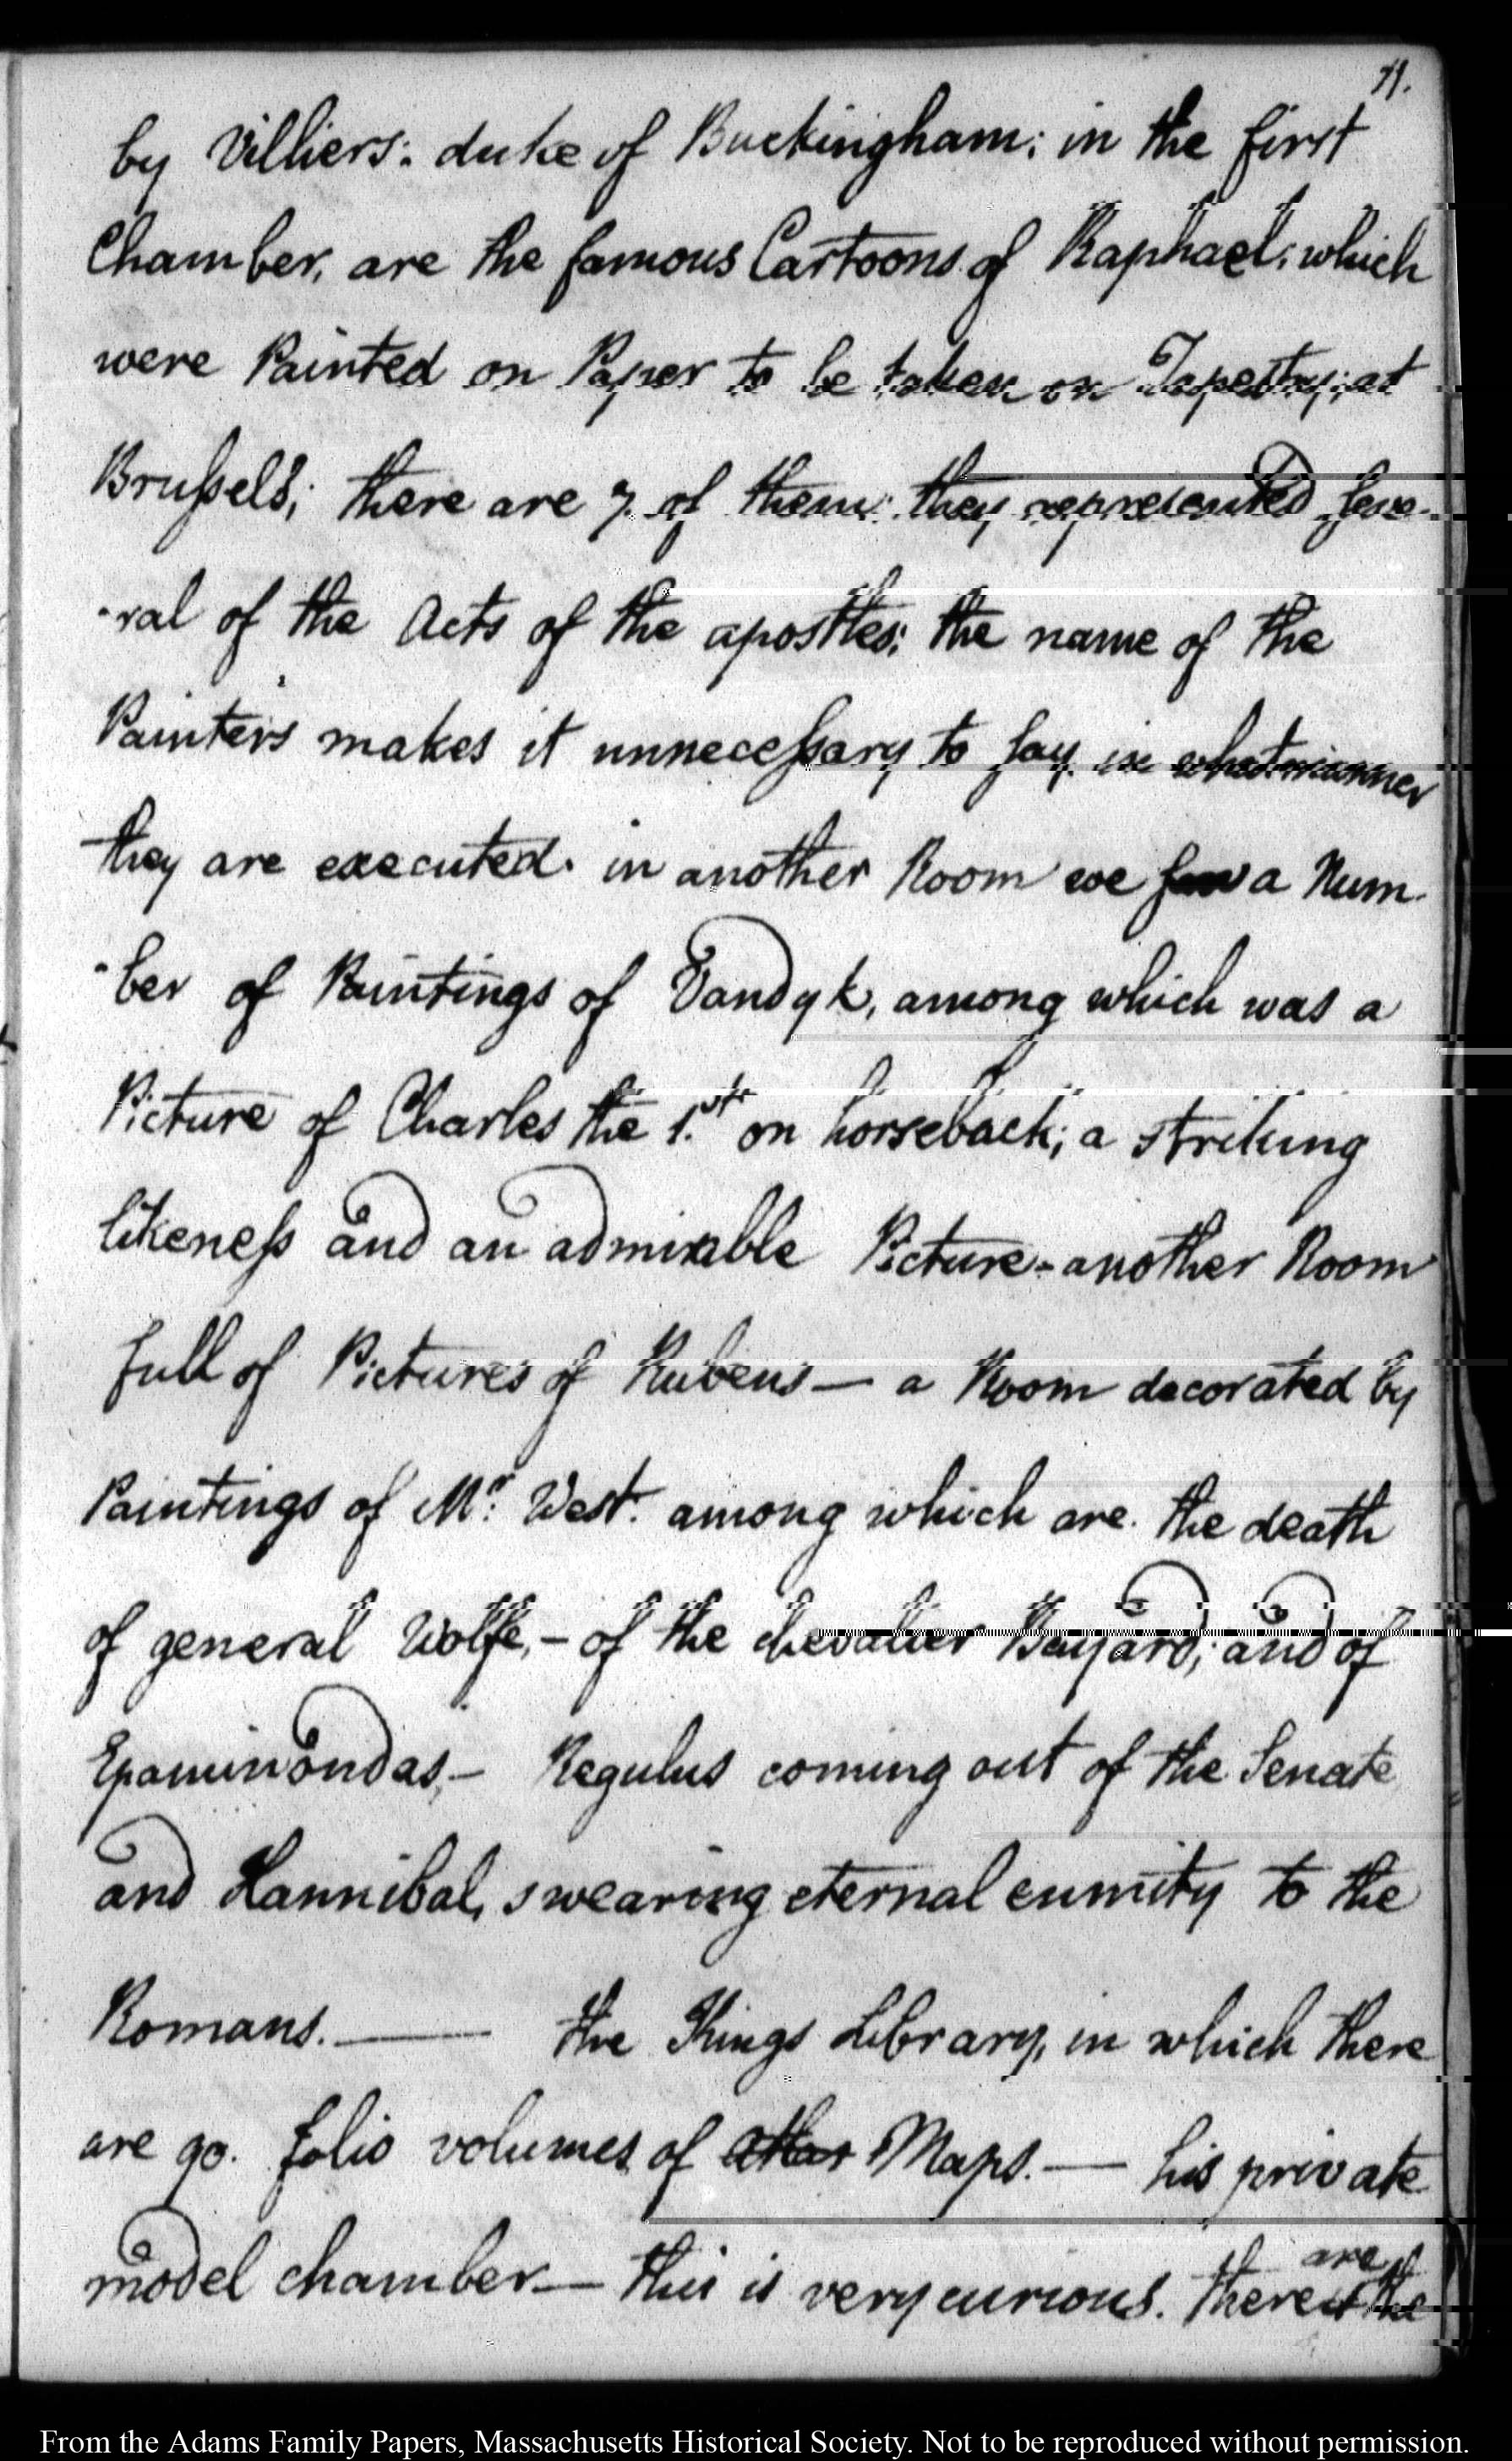 71.
by Villiers: duke of Buckingham: in the first
Chamber, are the famous Cartoons of Raphael: which
were Painted on Paper to be taken on Tapestry; at
Brussels; there are 7. of them: they represented seve-
-ral of the Acts of the apostles: the name of the
Painters makes it unnecessary to say in what manner
they are executed. in another Room we saw a Num-
-ber of Paintings of Vandyk, among which was a
Picture of Charles the 1.st on horseback; a striking
likeness and an admirable Picture - another Room
full of Pictures of Rubens — a Room decorated by
Paintings of Mr: West. among which are. the death
of general Wolfe, - of the chevalier Bayard; and of
Epaminondas, - Regulus coming out of the Senate
and Hannibal, swearing eternal enmity to the
Romans. —— the Kings Library, in which there
are 90. folio volumes of Maps. — his private
model chamber — this is very curious. there are the
From the Adams Family Papers, Massachusetts Historical Society. Not to be reproduced without permission.